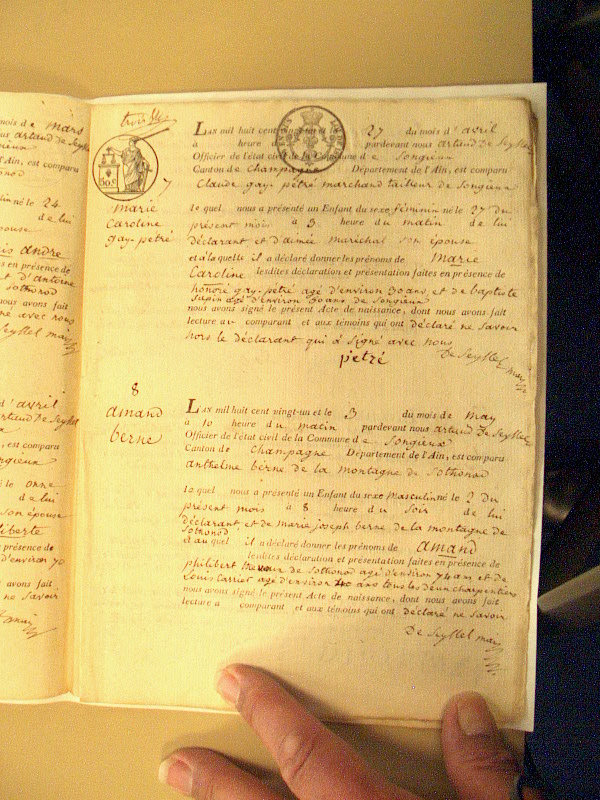 mois de mars
artaud de Seyssel
l'Ain, est compara
né le 24
de lui
épouse
andre
en présence de
et d'antoine
Sothonod
nous avons fait
avec nous
Seyssel may
d'avril
artaud de Seyssel
l'Ain, est compara
Songieux
le onze
de lui
son épouse
liberte
présence de
d'environ 70
avons fait
ne savoir
may
troisième
50.c
7
Marie
Caroline
gay-petré
L'an mil huit cent vingt-un et le 27 du mois d'avril
à heure pardevant nous artaud De Seyssel
Officier de l'état civil de la Commune de Songieux
Canton de Champagne Département de l'Ain, est comparu
Claude gay-petré marchand tailleur de Songieux
lequel nous a présenté un Enfant du sexe féminin né le 27 du
présent mois à 3 heure du matin de lui
déclarant et d'aimée maréchal son épouse
et à laquelle il a déclaré donner les prénoms de Marie
Caroline lesdites déclaration et présentation faites en présence de
honoré gay-petré agé d'environ 30 ans, et de baptiste
Supin agé d'environ 30 ans de Songieux
nous avons signé le présent Acte de naissance, dont nous avons fait
lecture au comparant et aux témoins qui ont déclaré ne savoir
hors le déclarant qui à signé avec nous
petré De Seyssel may
8
amand
berne
L'an mil huit cent vingt-un et le 3 du mois de may
à 10 heure du matin pardevant nous artaud De Seyssel
Officier de l'état civil de la Commune de Songieux
Canton de Champagne Département de l'Ain, est comparu
anthelme berne de la montagne de Sothonod
lequel nous a présenté un Enfant du sexe Masculin né le 2 du
présent mois à 8 heure du Soir de lui
déclarant et de marie joseph berne de la montagne de
Sothonod
et auquel il a déclaré donner les prénoms de amand
lesdites déclaration et présentation faites en présence de
philibert de Sothonod agé d'environ 74 ans et de
Louis Carrier agé d'environ 40 ans tous les deux charpentiers
nous avons signé le présent Acte de naissance, dont nous avons fait
lecture a comparant et aux témoins qui ont déclaré ne savoir
De Seyssel may